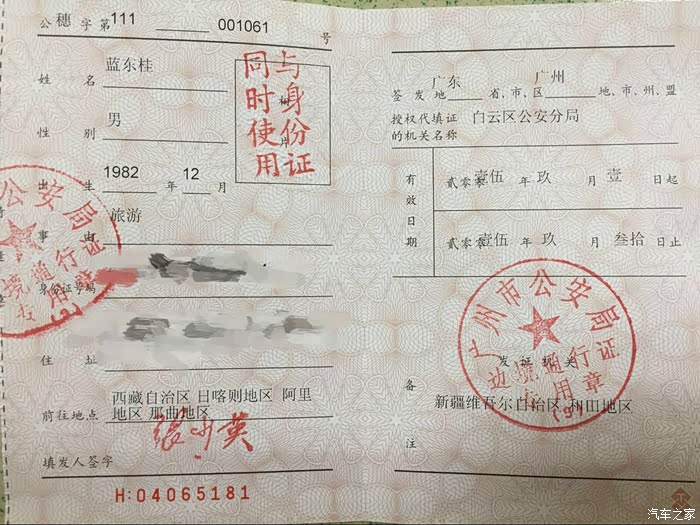 公 穗 字 第 111 001061 号
姓 名 蓝东桂
性 别 男
与身份证
同时使用
出 生 1982 年 12 月
事 由 旅游
身份证号码
住 址
前往地点 西藏自治区 日喀则地区 阿里
地区 那曲地区
填发人签字
H:04065181
签 发 地 广东 省、市、区 广州 地、市、州、盟
授权代填证 白云区公安分局
的机关名称
有效日期
贰零零壹伍 年 玖 月 壹 日起
贰零零壹伍 年 玖 月 叁拾 日止
广州市公安局
边境通行证
专用章
(9)
发 证 机 关
备 注
新疆维吾尔自治区 和田地区
公安局
境通行证
专用章
汽车之家